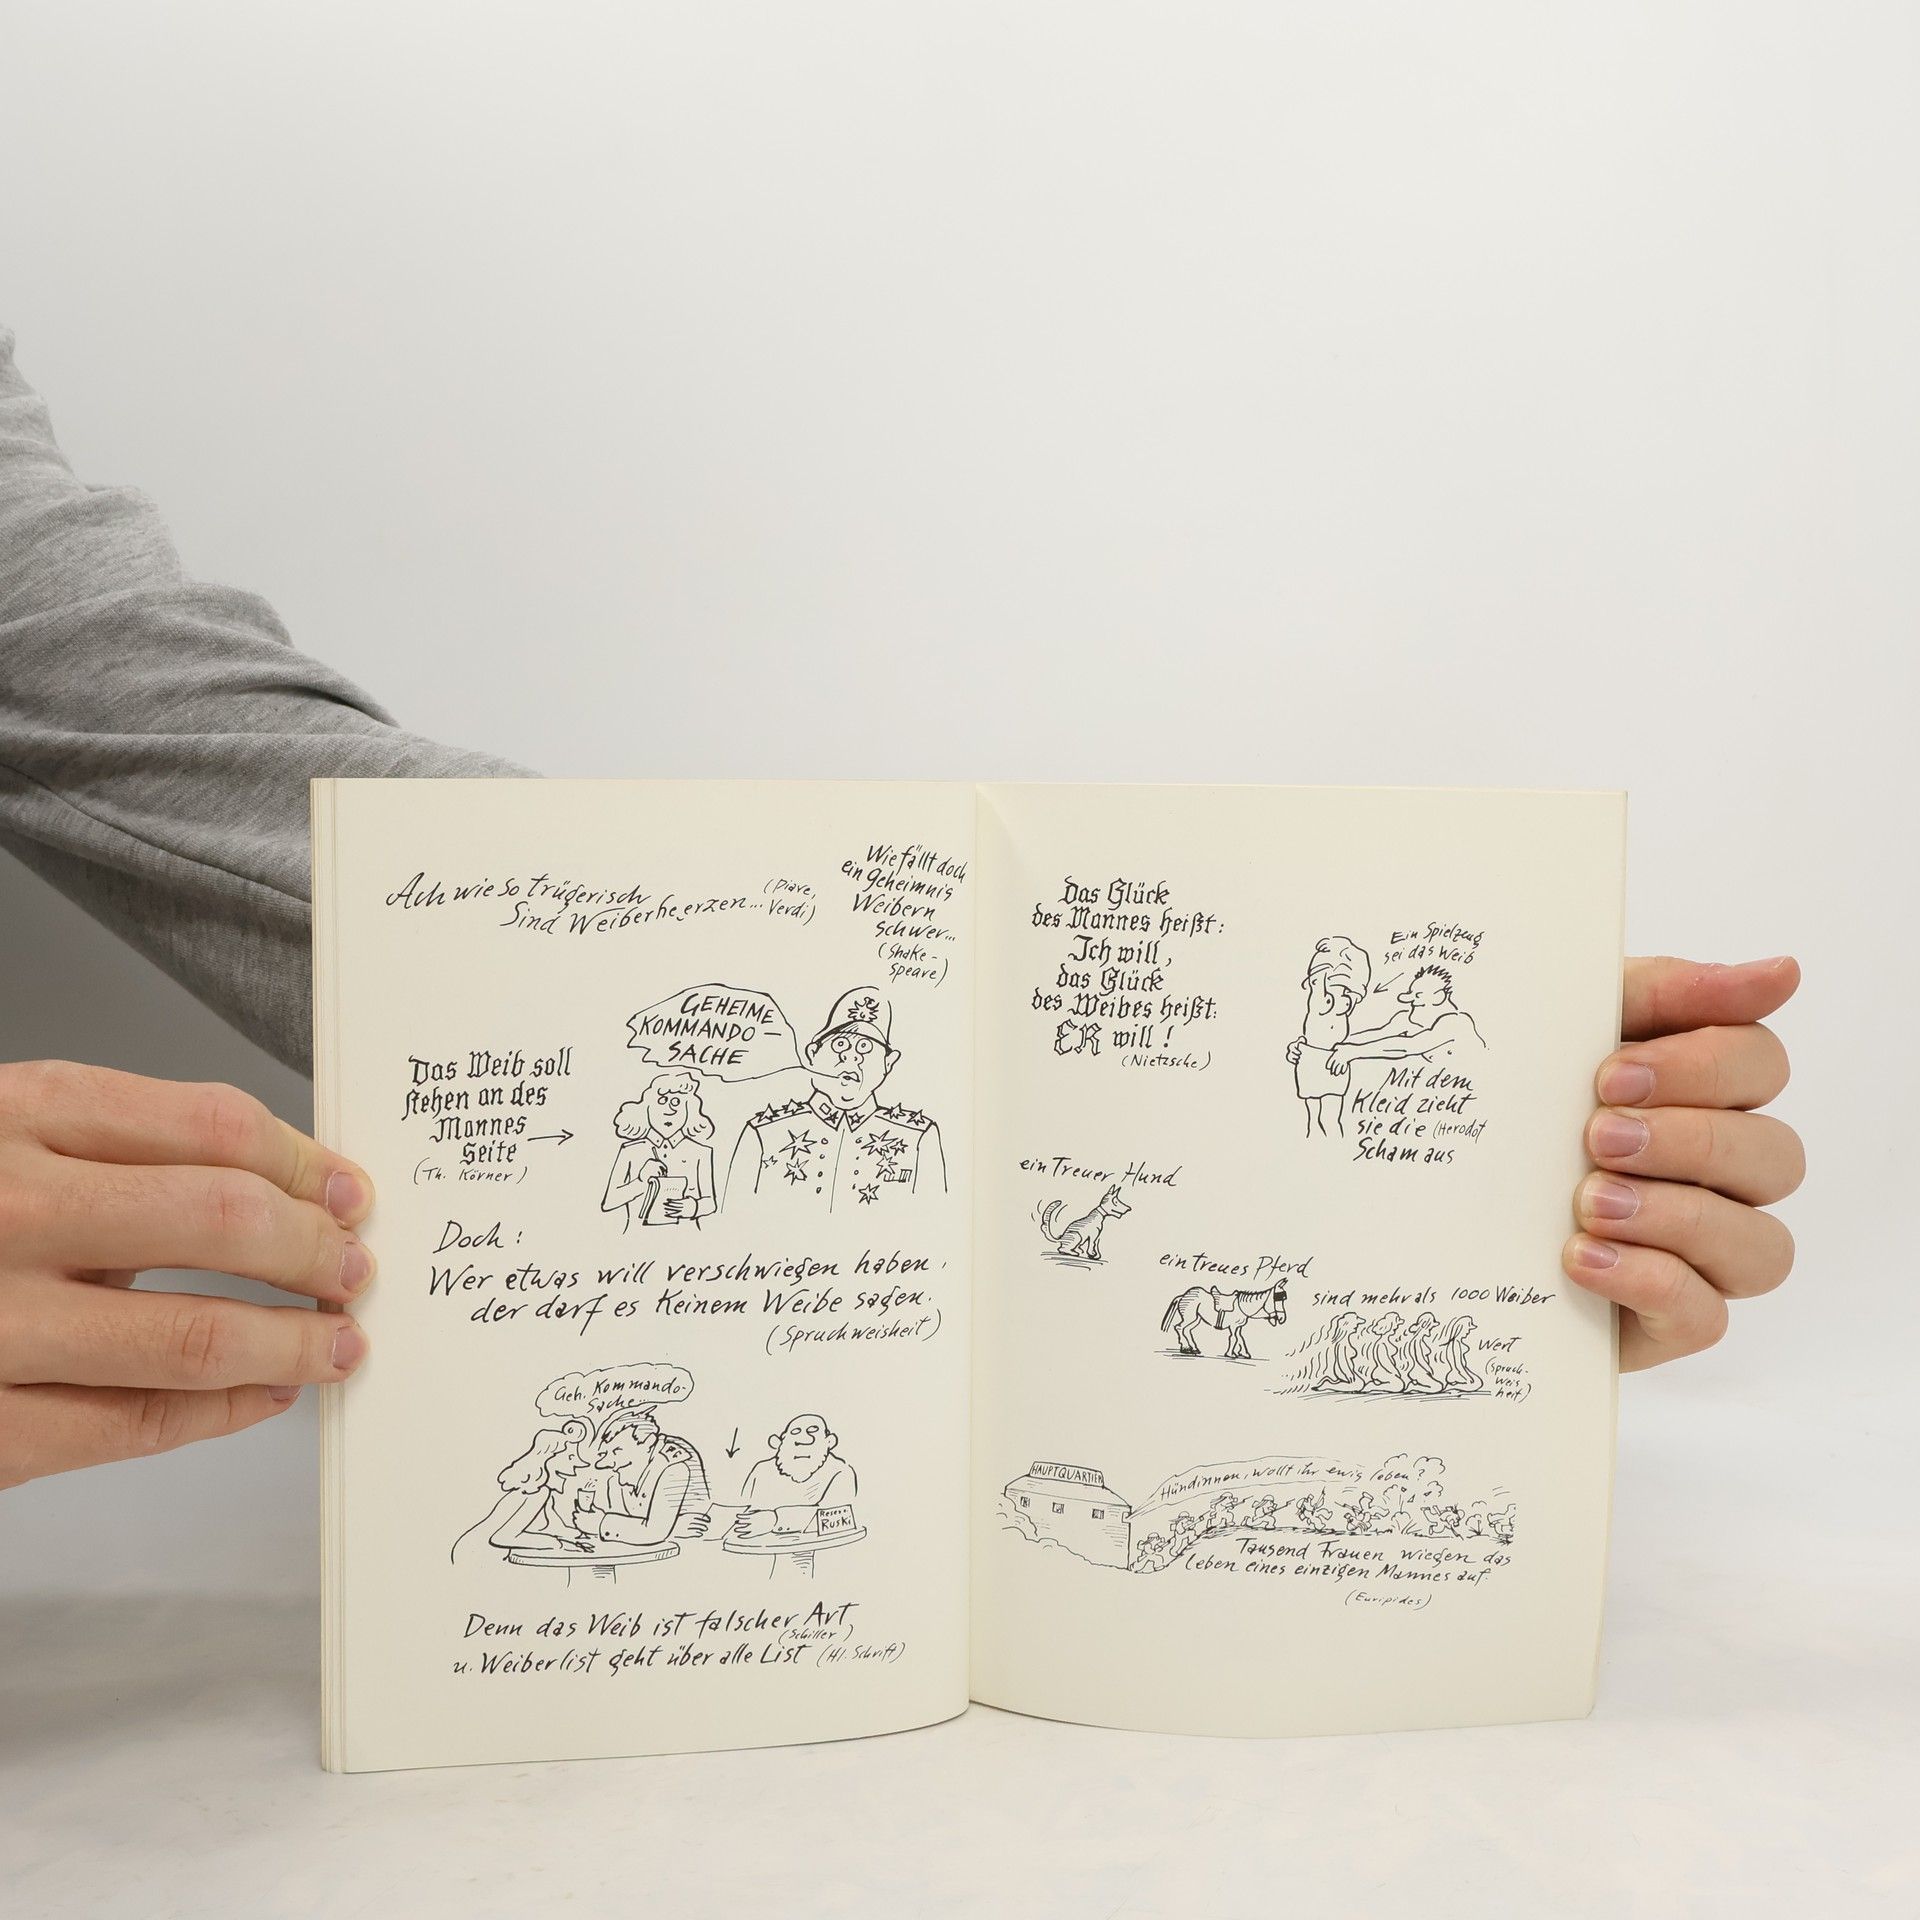 Ach wie so trügerisch
Sind Weiberheerzen... (Piave,
Verdi)
Wie fällt doch
ein Geheimnis
Weibern
schwer...
(Shake-
speare)
GEHEIME
KOMMANDO-
SACHE
Das Weib soll
stehen an des
Mannes
Seite
(Th. Körner)
Doch:
Wer etwas will verschwiegen haben,
der darf es keinem Weibe sagen.
(Spruchweisheit)
Geh. Kommando-
Sache..
Reser.
RUSKI
Denn das Weib ist falscher Art
(Schiller)
u. Weiberlist geht über alle List (Hl. Schrift)
Das Glück
des Mannes heißt:
Ich will,
das Glück
des Weibes heißt:
ER will!
(Nietzsche)
Ein Spielzeug
sei das Weib
Mit dem
Kleid zieht
sie die (Herodot
Scham aus
ein treuer Hund
ein treues Pferd
sind mehr als 1000 Weiber
Wert
(Spruch-
weis-
heit)
HAUPTQUARTIER
Hündinnen, wollt ihr ewig leben?
Tausend Frauen wiegen das
Leben eines einzigen Mannes auf.
(Euripides)